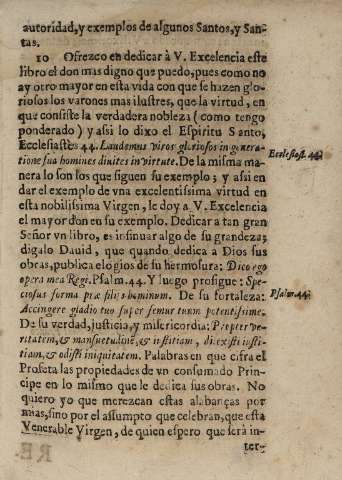 autoridad, y exemplos de algunos Santos, y San-
tas.
10 Ofrezco en dedicar à V. Excelencia este
libro el don mas digno que puedo, pues como no
ay otro mayor en esta vida con que se hazen glo-
riosos los varones mas ilustres, que la virtud, en
que consiste la verdadera nobleza (como tengo
ponderado) y assi lo dixo el Espiritu Santo,
Ecclesiastes 44. Laudemus viros gloriosos in genera-
Ecclesiast. 44.
tione sua homines diuites in virtute. De la misma ma-
nera lo son los que siguen su exemplo; y assi en
dar el exemplo de vna excelentissima virtud en
esta nobilissima Virgen, le doy a V. Excelencia
el mayor don en su exemplo. Dedicar a tan gran
Señor vn libro, es insinuar algo de su grandeza;
digalo Dauid, que quando dedica a Dios sus
obras, publica elogios de su hermosura: Dico ego
opera mea Regi. Psalm. 44. Y luego prosigue: Spe-
ciosus forma præ filijs hominum. De su fortaleza:
Psalm. 44.
Accingere gladio tuo super femur tuum potentissime.
De su verdad, justicia, y misericordia: Propter ve-
ritatem, & mansuetudinem, & iustitiam, dilexisti iusti-
tiam, & odisti iniquitatem. Palabras en que cifra el
Profeta las propiedades de vn consumado Prin-
cipe en lo mismo que le dedica sus obras. No
quiero yo que merezcan estas alabanças por
mias, sino por el assumpto que celebran, que esta
Venerable Virgen, de quien espero que serà in-
ter-